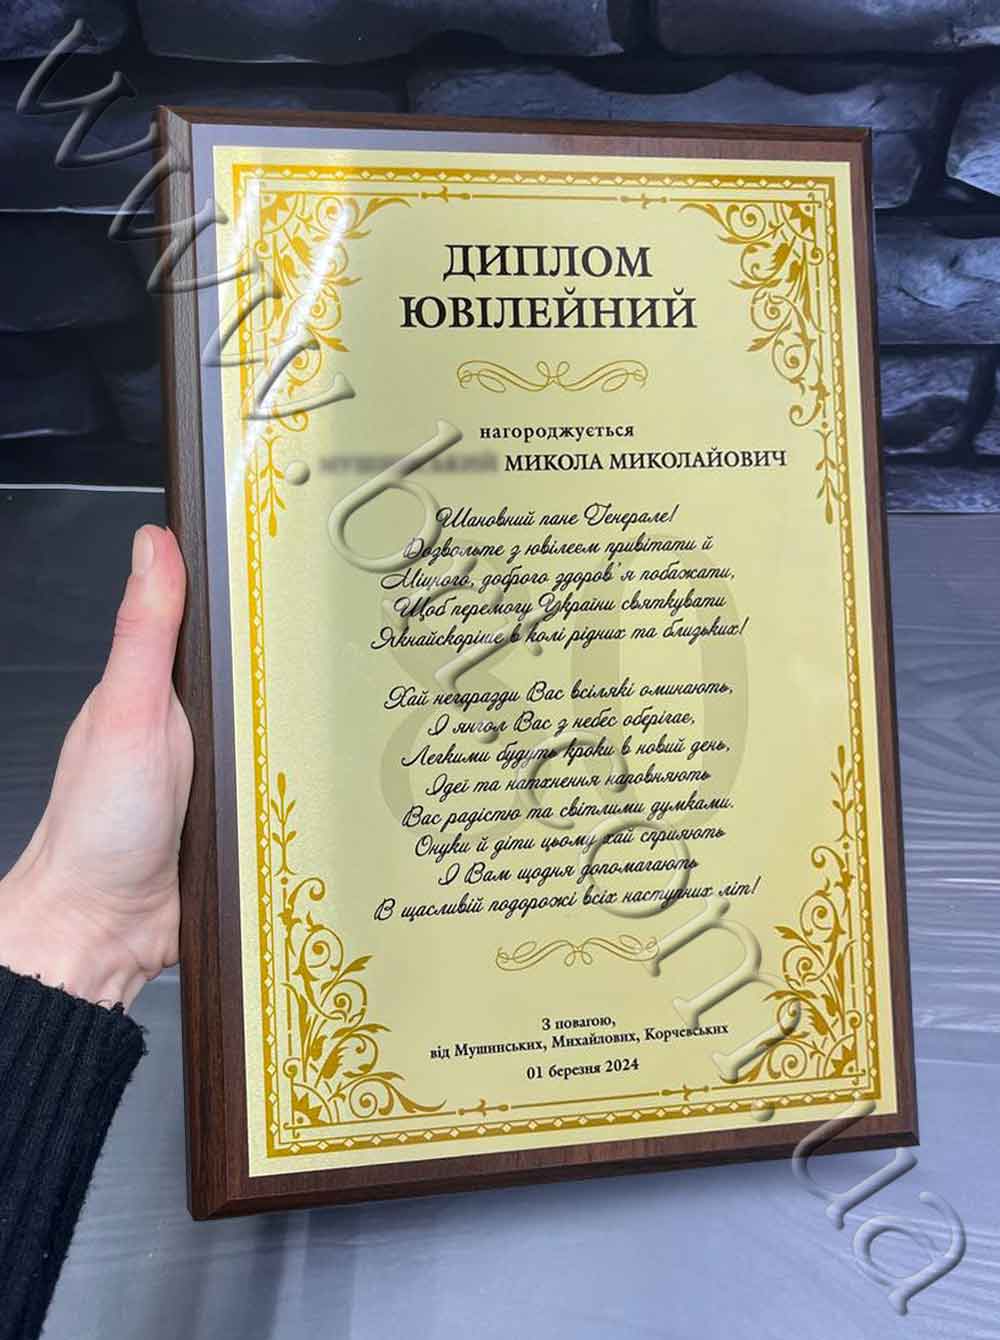 ДИПЛОМ
ЮВІЛЕЙНИЙ
нагороджується
МИКОЛА МИКОЛАЙОВИЧ
Шановний пане Генерале!
Дозвольте з ювілеєм привітати й
Міцного, доброго здоров'я побажати,
Щоб перемогу України святкувати
Якнайскоріше в колі рідних та близьких!
Хай негаразди Вас всілякі оминають,
І янгол Вас з небес оберігає,
Легкими будуть кроки в новий день,
Ідеї та натхнення наповняють
Вас радістю та світлими думками.
Онуки й діти цьому хай сприяють
І Вам щодня допомагають
В щасливій подорожі всіх наступних літ!
80
З повагою,
від Мушинських, Михайлових, Корчевських
01 березня 2024